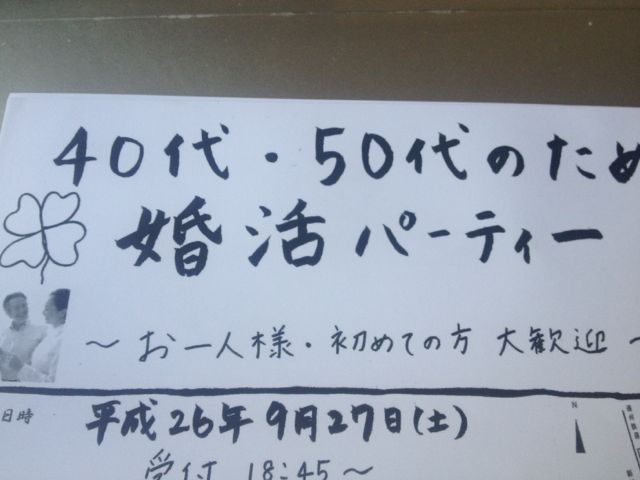 40代・50代のため
婚活パーティー
～お一人様・初めての方 大歓迎～
日時
平成26年9月27日(土)
受付 18:45～
N